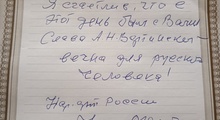 Я счастлив, что в
этот день был с Вами
Слава А.Н. Вертинского
вечна для русского
человека!
Нар. арт России